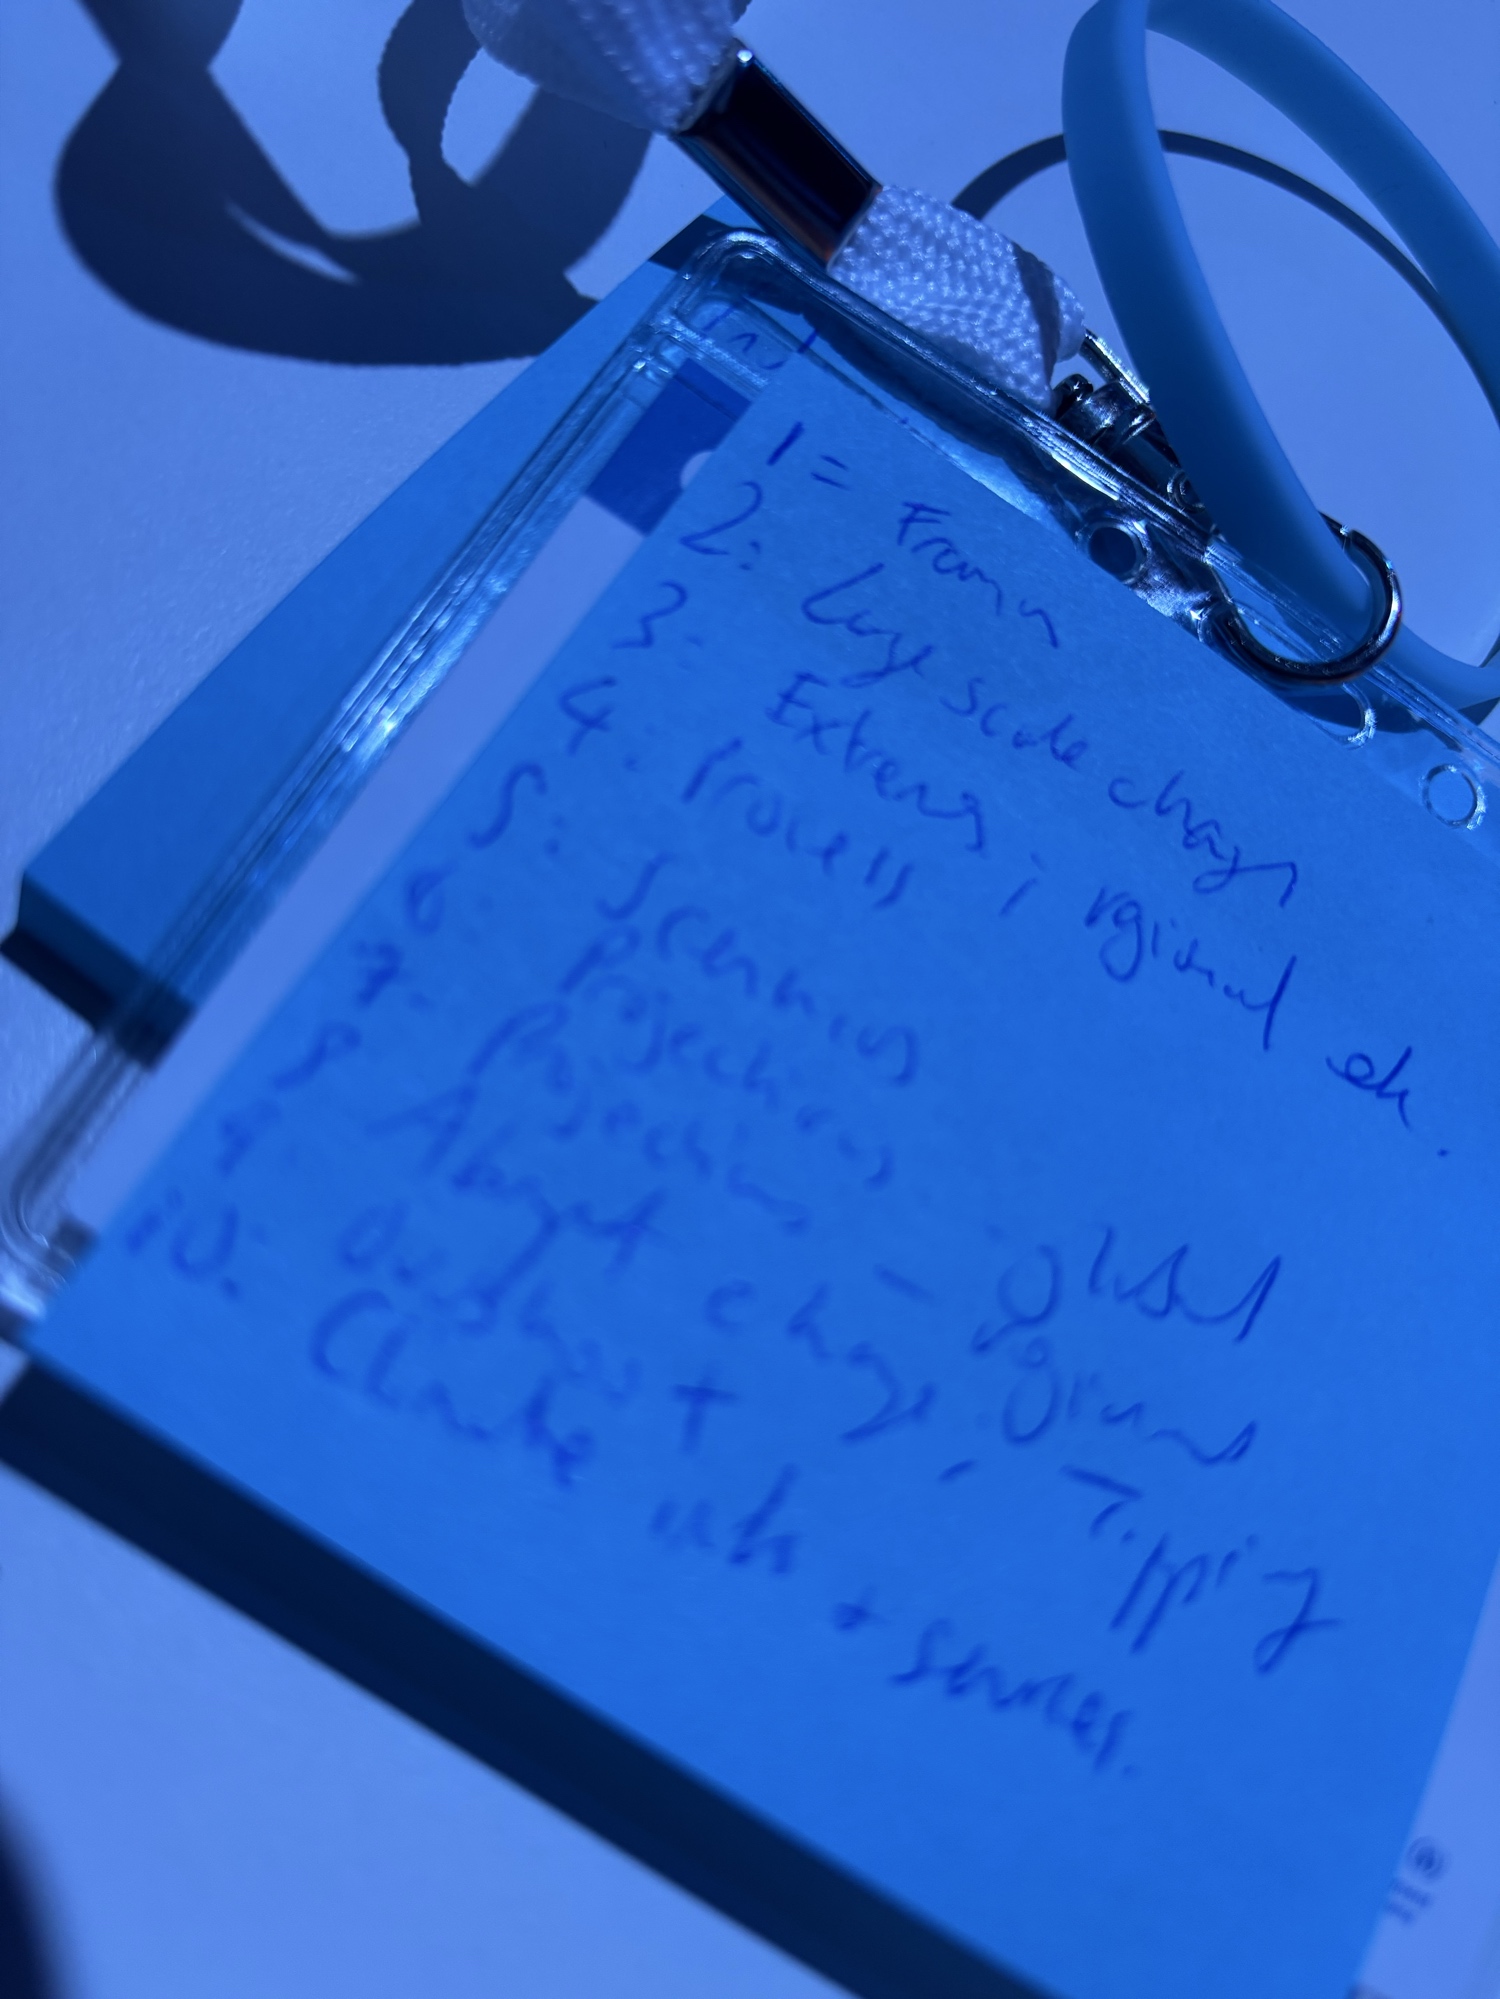 1 = Framin
2: Large scale changes
3. Extremes, regional etc.
4. Process
5: Scenarios
6. Projections - global
7. Projections - regional
8 Abrupt change, Tipping
9. +
10: Climate info + services.